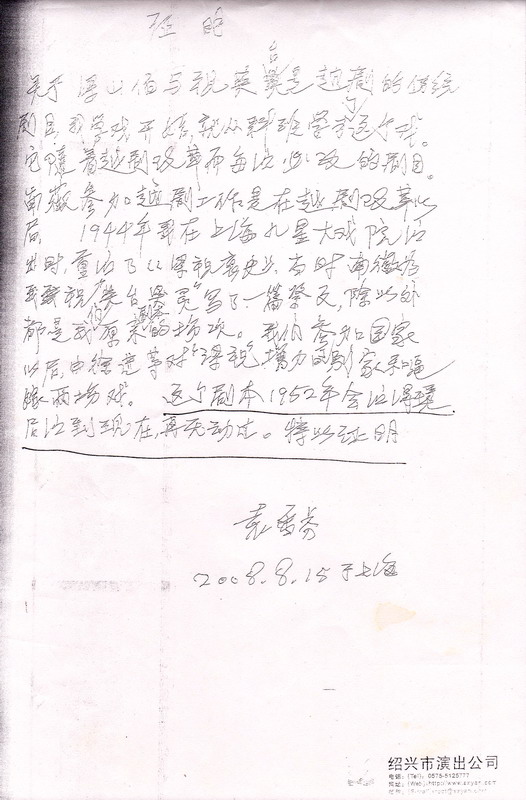 证明
关于梁山伯与祝英台是越剧的传统
剧目,我学戏开始,就从科班学去这个戏。
它随着越剧改革而每次必改的剧目。
南薇参加越剧工作是在越剧改革以
后 1944年我在上海九星大戏院演
出时,重演了《梁祝哀史》,当时南薇为
我 祝英台 写了一篇祭文,除此外
都是我原来的 场次。我们参加国家
以后由徐进等对“梁祝”增加的 家 逼
嫁两场戏。 这个剧本1952年会演得奖
后演到现在,再无动过。特此证明
袁雪芬
2008.8.15于上海
绍兴市演出公司
电话:(Tel): 0575-5125777
网址:(Web):http://www.sxyan.com